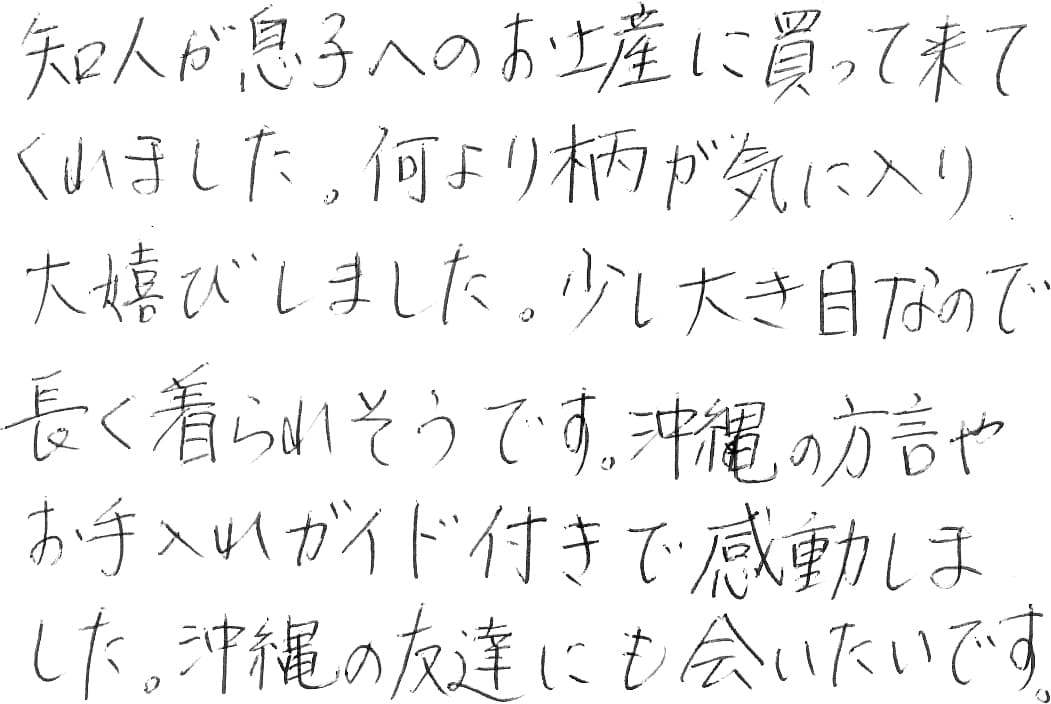 知人が息子へのお土産に買って来て
くれました。何より柄が気に入り
大嬉びしました。少し大き目なので
長く着られそうです。沖縄の方言や
お手入れガイド付きで感動しま
した。沖縄の友達にも会いたいです。